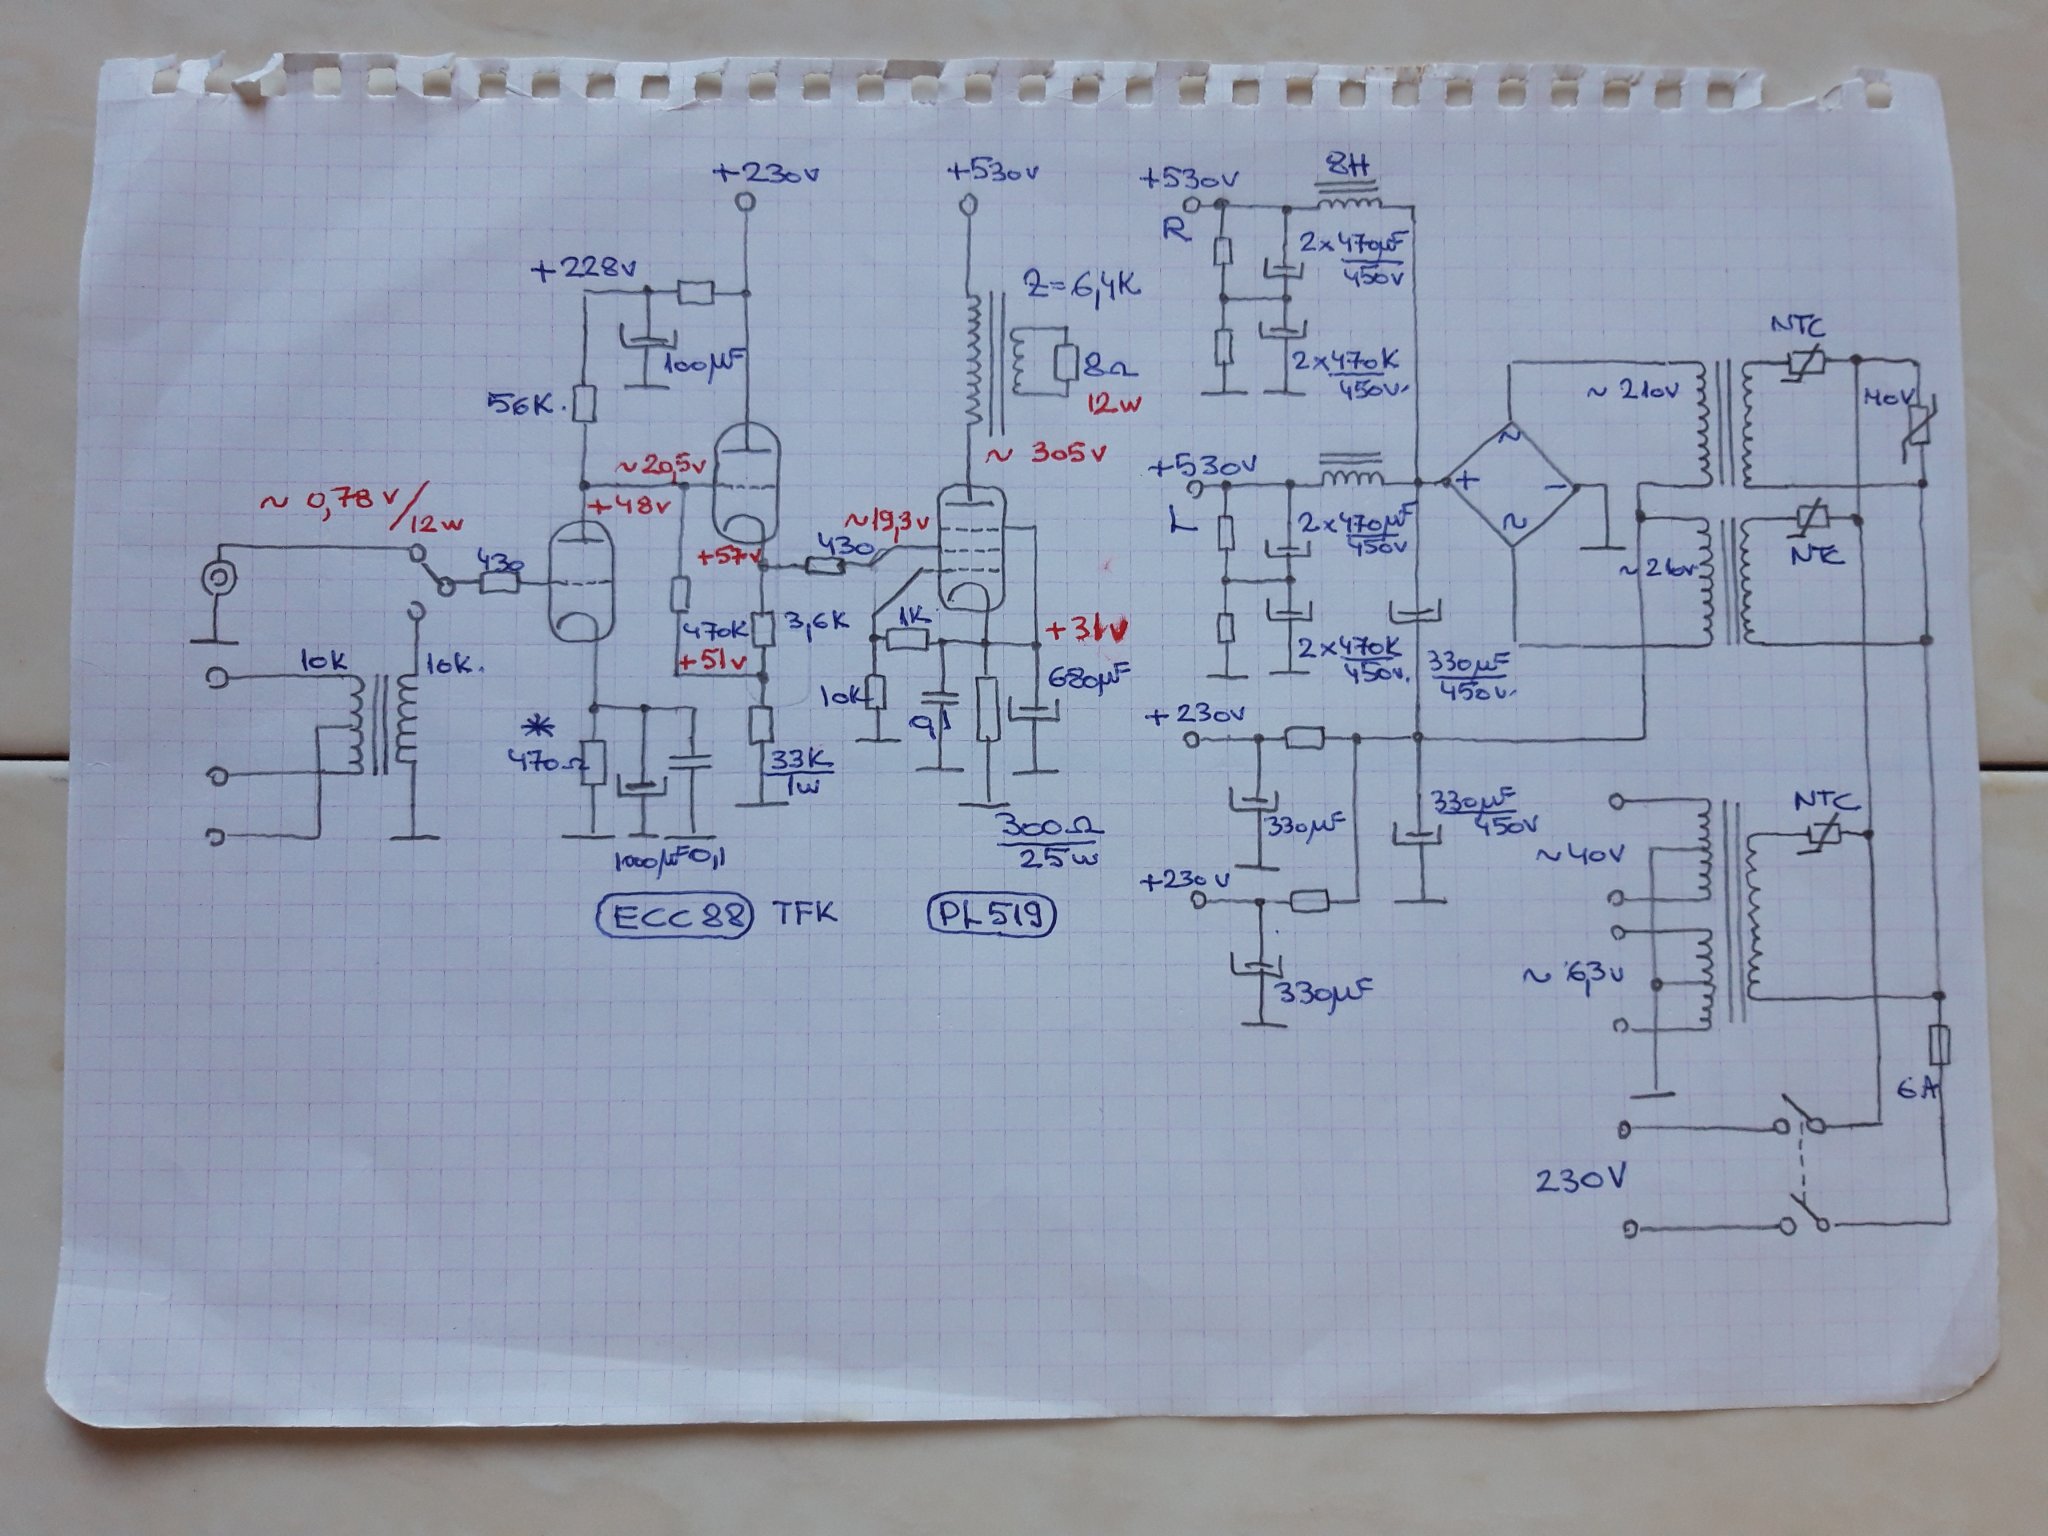 +230V
+530V
+228V
100µF
56K.
Z=6,4K
8Ω
12W
~ 305V
~20,5V
+48V
~ 0,78V/12W
430
+57V
~19,3V
430
470K
3,6K
+51V
1K
+31V
10K
680µF
10K
10K.
*
470Ω
33K
1W
300Ω
25W
1000µF
0,1
ECC88 TFK
PL519
+530V
8H
R
2x470µF
450V
2x470K
450V.
+530V
L
2x470µF
450V
2x470K
450V.
+
~
-
~
330µF
450V.
+230V
330µF
330µF
450V
+230V
330µF
~ 210V
NTC
~ 210V
NTC
NTC
~40V
~ 6,3V
6A
230V